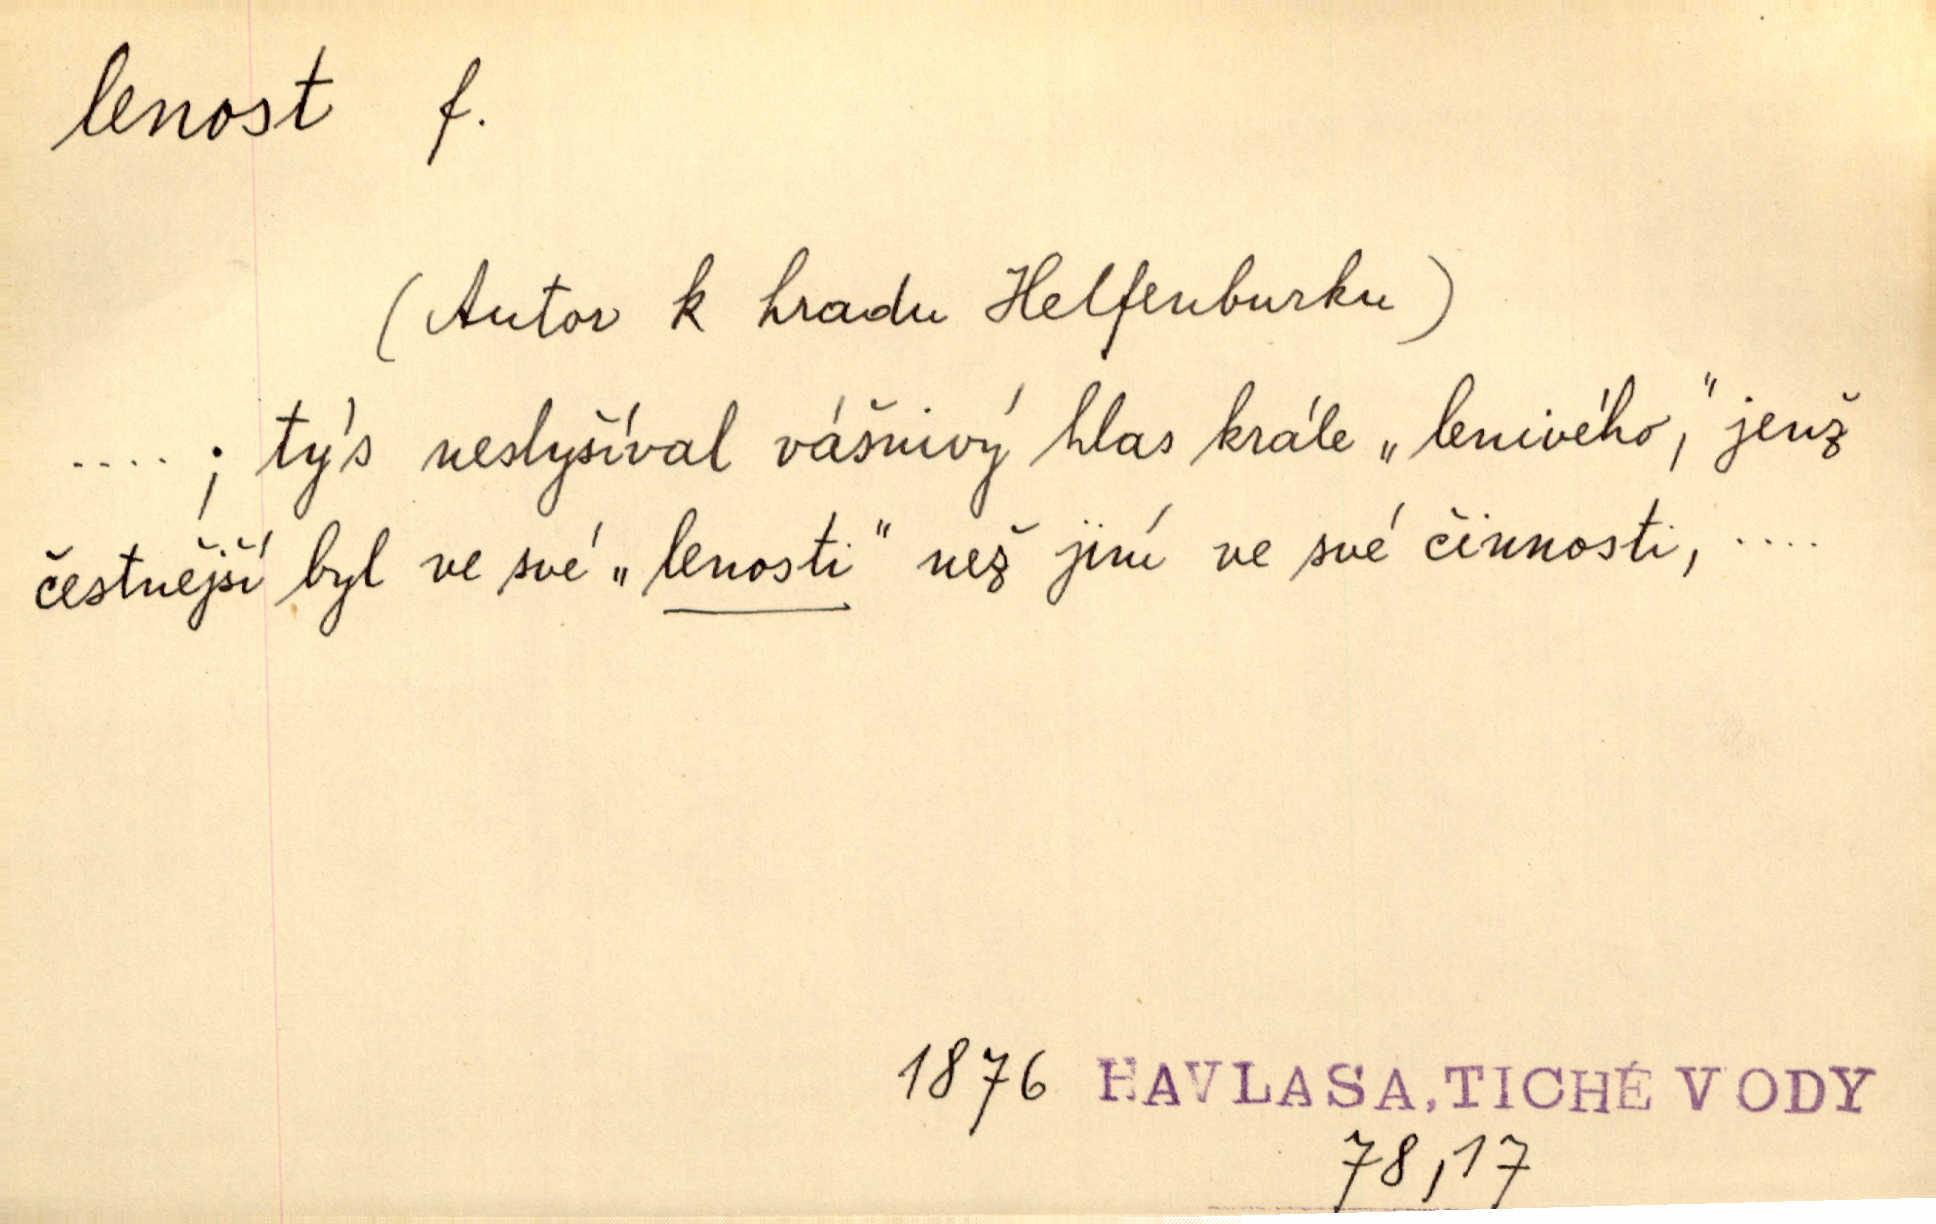 lenost f.
(Autor k hradu Helfenburku)
....; týs neslyšíval vášnivý hlas krále „lenivého,“ jenž
čestnější byl ve své „lenosti“ než jiní ve své činnosti, ....
1876 HAVLASA, TICHÉ VODY
78,17